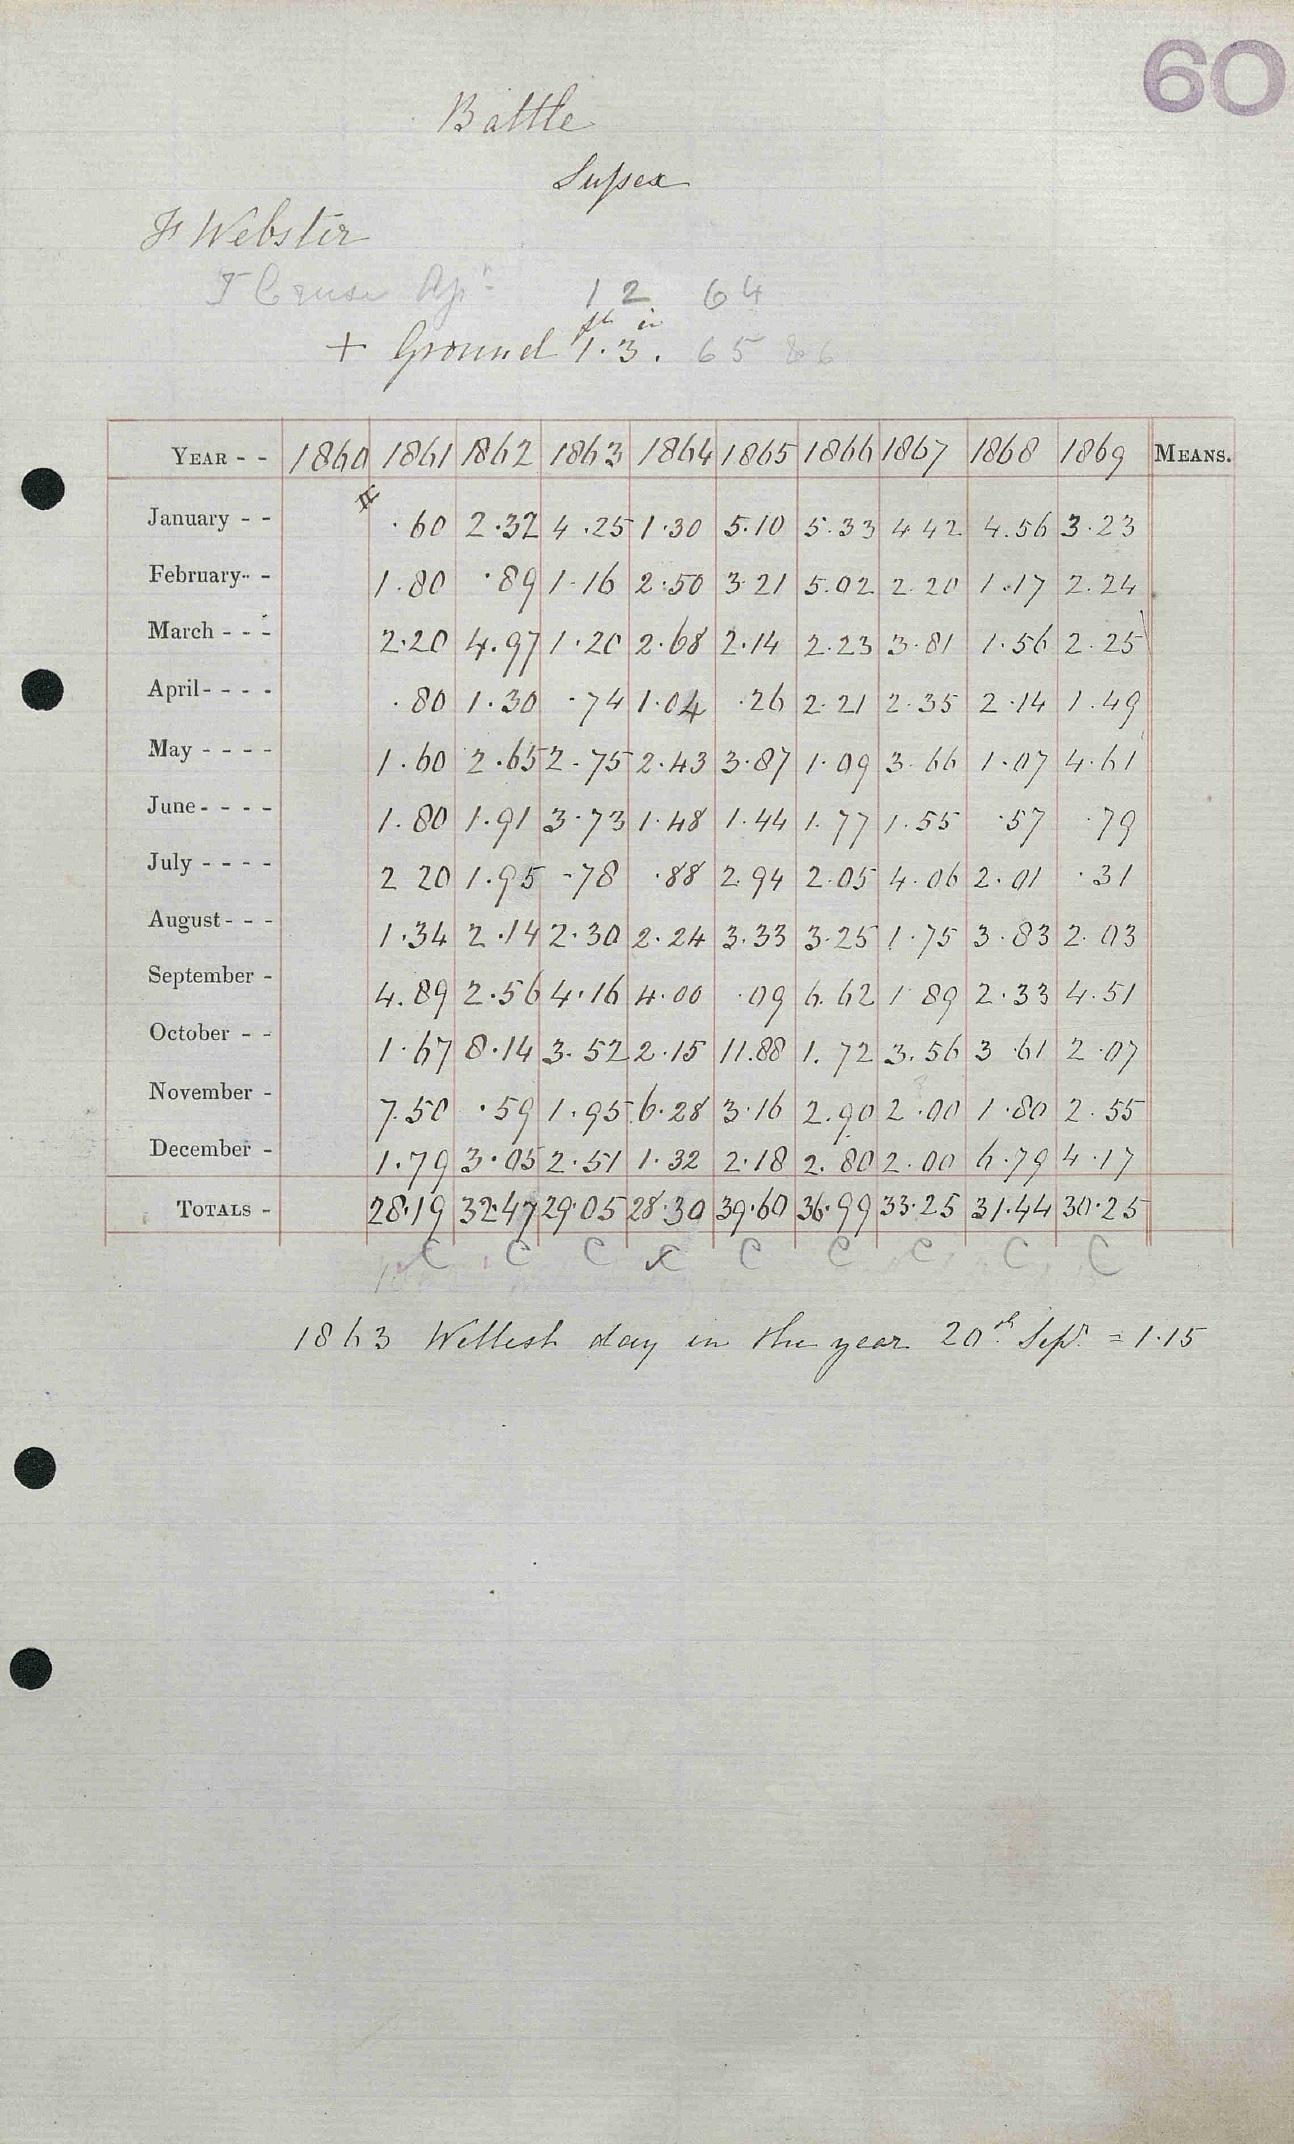 60
Battle
Sussex
Fk Webster
T Cruse 12 64
+ Ground 1.3. 65 86
ft in
YEAR - - 1860 1861 1862 1863 1864 1865 1866 1867 1868 1869 MEANS.
January - - .60 2.32 4.25 1.30 5.10 5.33 4 42 4.56 3.23
February - - 1.80 .89 1.16 2.50 3.21 5.02 2.20 1.17 2.24
March - - - 2.20 4.97 1.20 2.68 2.14 2.23 3.81 1.56 2.25
April - - - - .80 1.30 .74 1.04 .26 2.21 2.35 2.14 1.49
May - - - - 1.60 2.65 2.75 2.43 3.87 1.09 3.66 1.07 4.61
June - - - - 1.80 1.91 3.73 1.48 1.44 1.77 1.55 .57 .79
July - - - - 2 20 1.95 .78 .88 2.94 2.05 4.06 2.01 .31
August - - - 1.34 2.14 2.30 2.24 3.33 3.25 1.75 3.83 2.03
September - 4.89 2.56 4.16 4.00 .09 6.62 1 89 2.33 4.51
October - - 1.67 8.14 3.52 2.15 11.88 1.72 3.56 3.61 2.07
November - 7.50 .59 1.95 6.28 3.16 2.90 2.00 1.80 2.55
December - 1.79 3.05 2.51 1.32 2.18 2.80 2.00 6.79 4.17
TOTALS - 28.19 32.47 29.05 28.30 39.60 36.99 33.25 31.44 30.25
C C C C C C C C C
1863 Wettest day in the year 20th Sept = 1.15